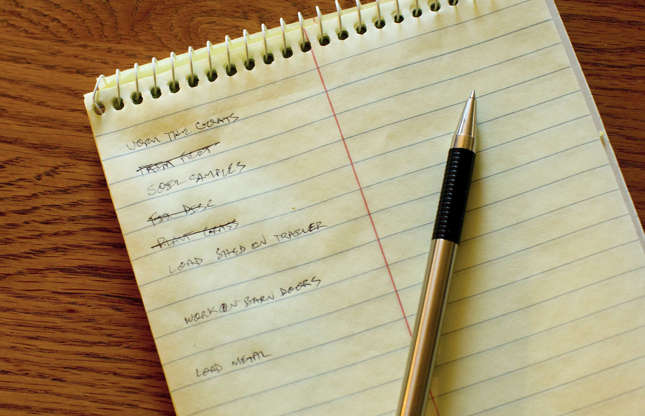 WORM THE GOATS
TRIM FEET
SOIL SAMPLES
DISC
PLANT GRASS
LOAD SHED ON TRAILER
WORK ON BARN DOORS
LOAD METAL